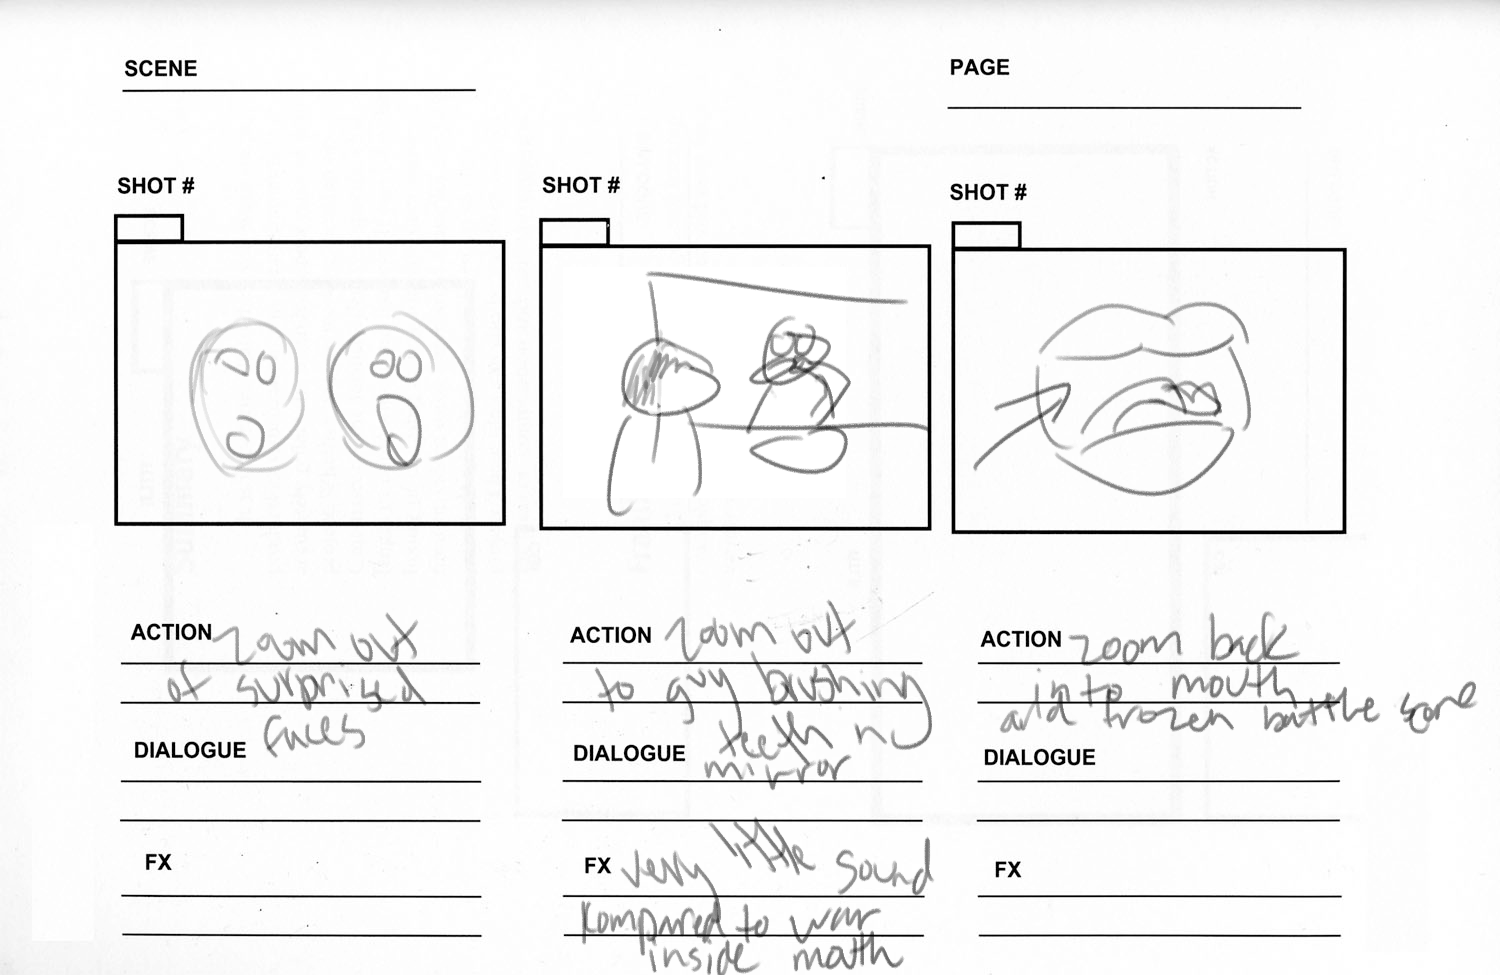 SCENE
PAGE
SHOT #
SHOT #
SHOT #
ACTION zoom out
of surprised
faces
DIALOGUE
FX
ACTION zoom out
to guy brushing
teeth in
mirror
DIALOGUE
FX very little sound
kompared to war
inside mouth
ACTION zoom back
into mouth
and frozen battle
DIALOGUE
FX